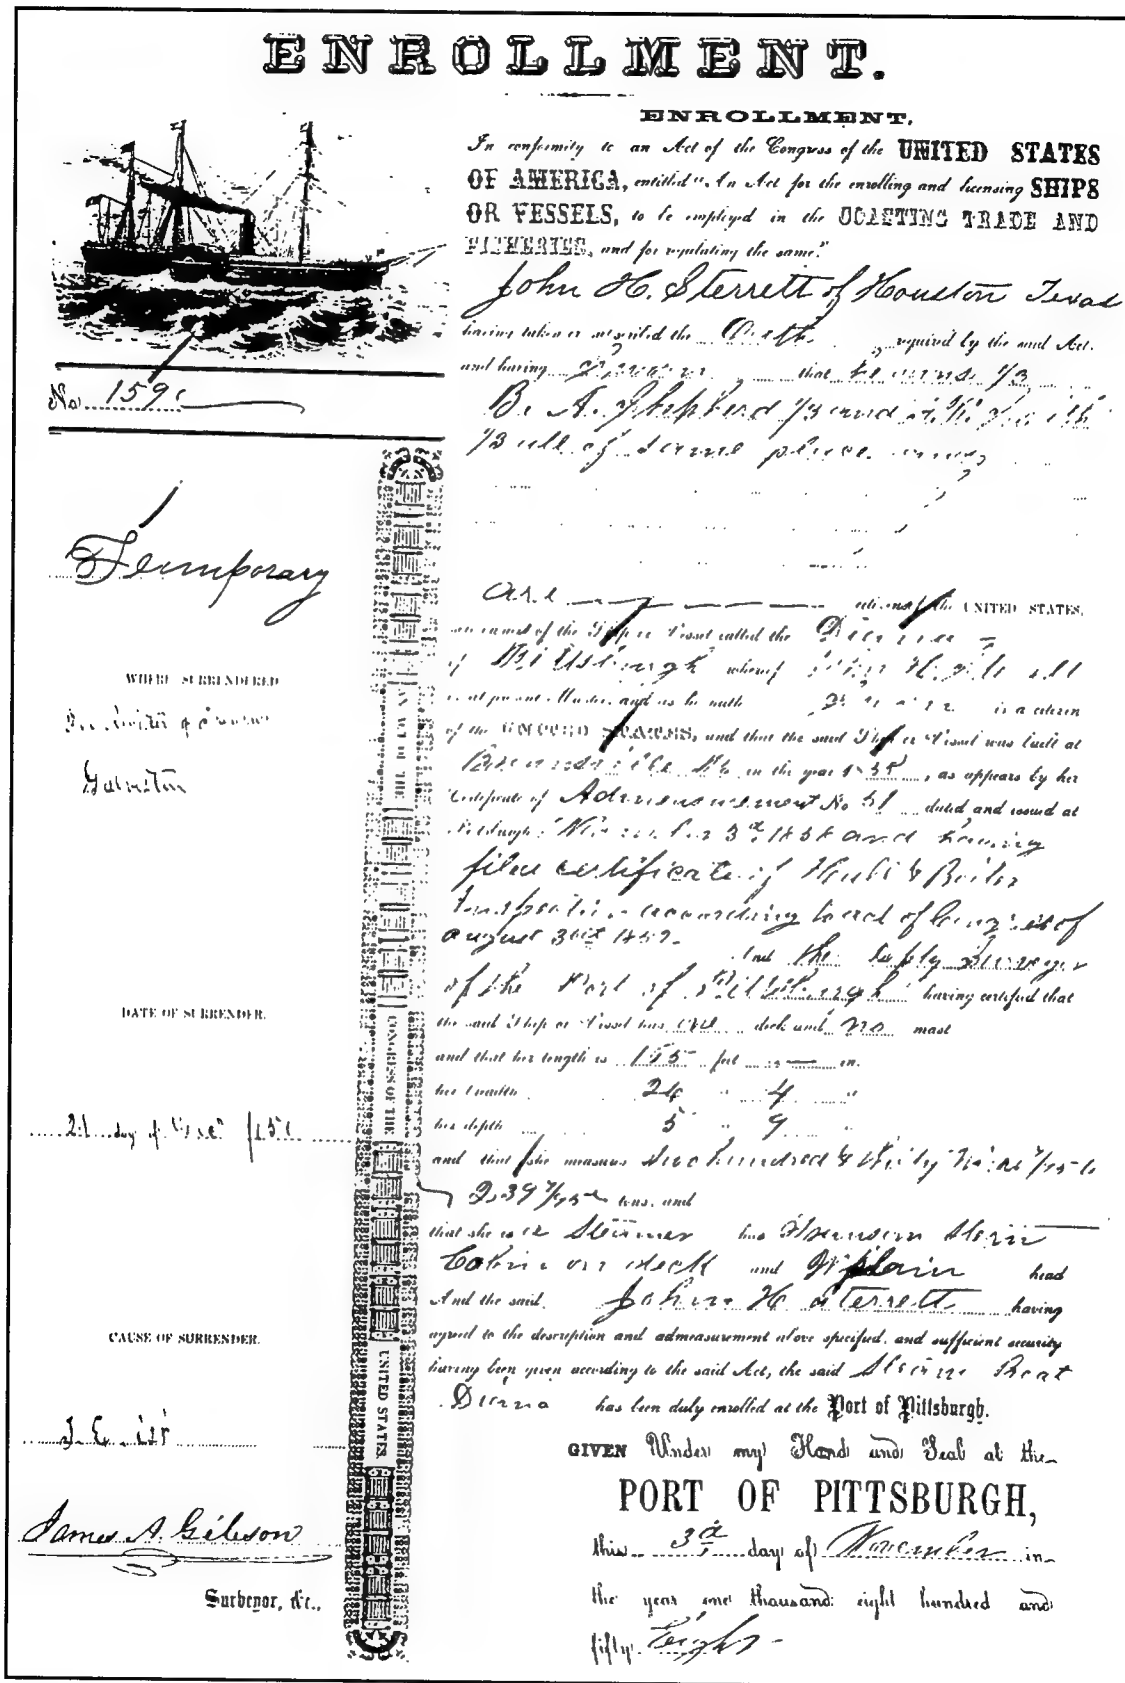 ENROLLMENT.
ENROLLMENT.
In conformity to an Act of the Congress of the UNITED STATES
OF AMERICA, entitled "An Act for the enrolling and licensing SHIPS
OR VESSELS, to be employed in the COASTING TRADE AND
FISHERIES, and for regulating the same."
John H. Sterrett of Houston Texas
having taken or subscribed the Oath required by the said Act.
and having Sworn that he owns 1/3
B. A. Shepherd 1/3 and
1/3 all of same place
No. 159
Temporary
are citizens of the UNITED STATES,
of the Ship or Vessel called the Diana
of Pittsburgh whereof John H.
is at present Master, and as he hath Sworn is a citizen
of the UNITED STATES, and that the said Ship or Vessel was built at
Brownsville Pa in the year 1858, as appears by her
Certificate of Admeasurement No 51 dated and issued at
Pittsburgh November 3d 1858 and having
filed certificate of Hull & Boiler
Inspection according to act of Congress of
August 30th 1852.
And the Deputy Surveyor
of the Port of Pittsburgh having certified that
the said Ship or Vessel has one deck and no mast
and that her length is 165 feet — in.
her breadth 24 " 4 "
her depth 5 " 9 "
and that she measures Two hundred &
239 tons, and
that she is a Steamer has Transom Stern
Cabin on deck and plain head
And the said, John H Sterrett having
agreed to the description and admeasurement above specified, and sufficient security
having been given according to the said Act, the said Steam Boat
Diana has been duly enrolled at the Port of Pittsburgh.
GIVEN Under my Hand and Seal at the
PORT OF PITTSBURGH,
this 3d day of November in
the year one thousand eight hundred and
fifty Eight
WHERE SURRENDERED
Galveston
DATE OF SURRENDER.
21 day of
CAUSE OF SURRENDER.
James A. Gibson
Surveyor, &c.,
CONGRESS OF THE
UNITED STATES.